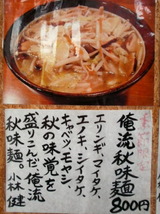 俺流秋味麺
800円
エリンギ、マイタケ、
エノキ、シイタケ、
キャベツ、モヤシ、
秋の味覚を
盛りこんだ俺流
秋味麺。小林 健